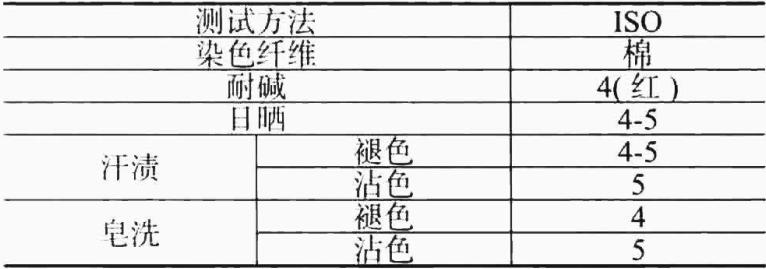 测试方法 ISO
染色纤维 棉
耐碱 4(红)
日晒 4-5
汗渍 褪色 4-5
沾色 5
皂洗 褪色 4
沾色 5